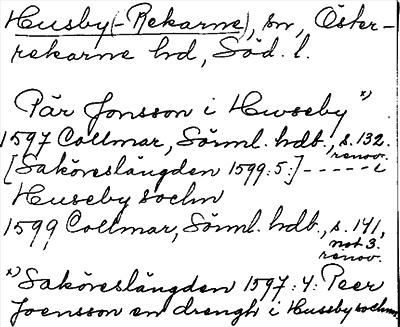 Husby(-Rekarne), sn, Öster-
rekarne hd, Söd. l.
Pär Jonsson i Hwseby x)
1597 Collmar, Sörml. hdb., s. 132.
renov.
[Saköreslängden 1599:5:] - - - - - i
Huseby sochn
1599 Collmar, Sörml. hdb., s. 141,
not 3.
renov.
x) Saköreslängden 1597:4: Peer
Joensson en drengh i Huseby sochn.